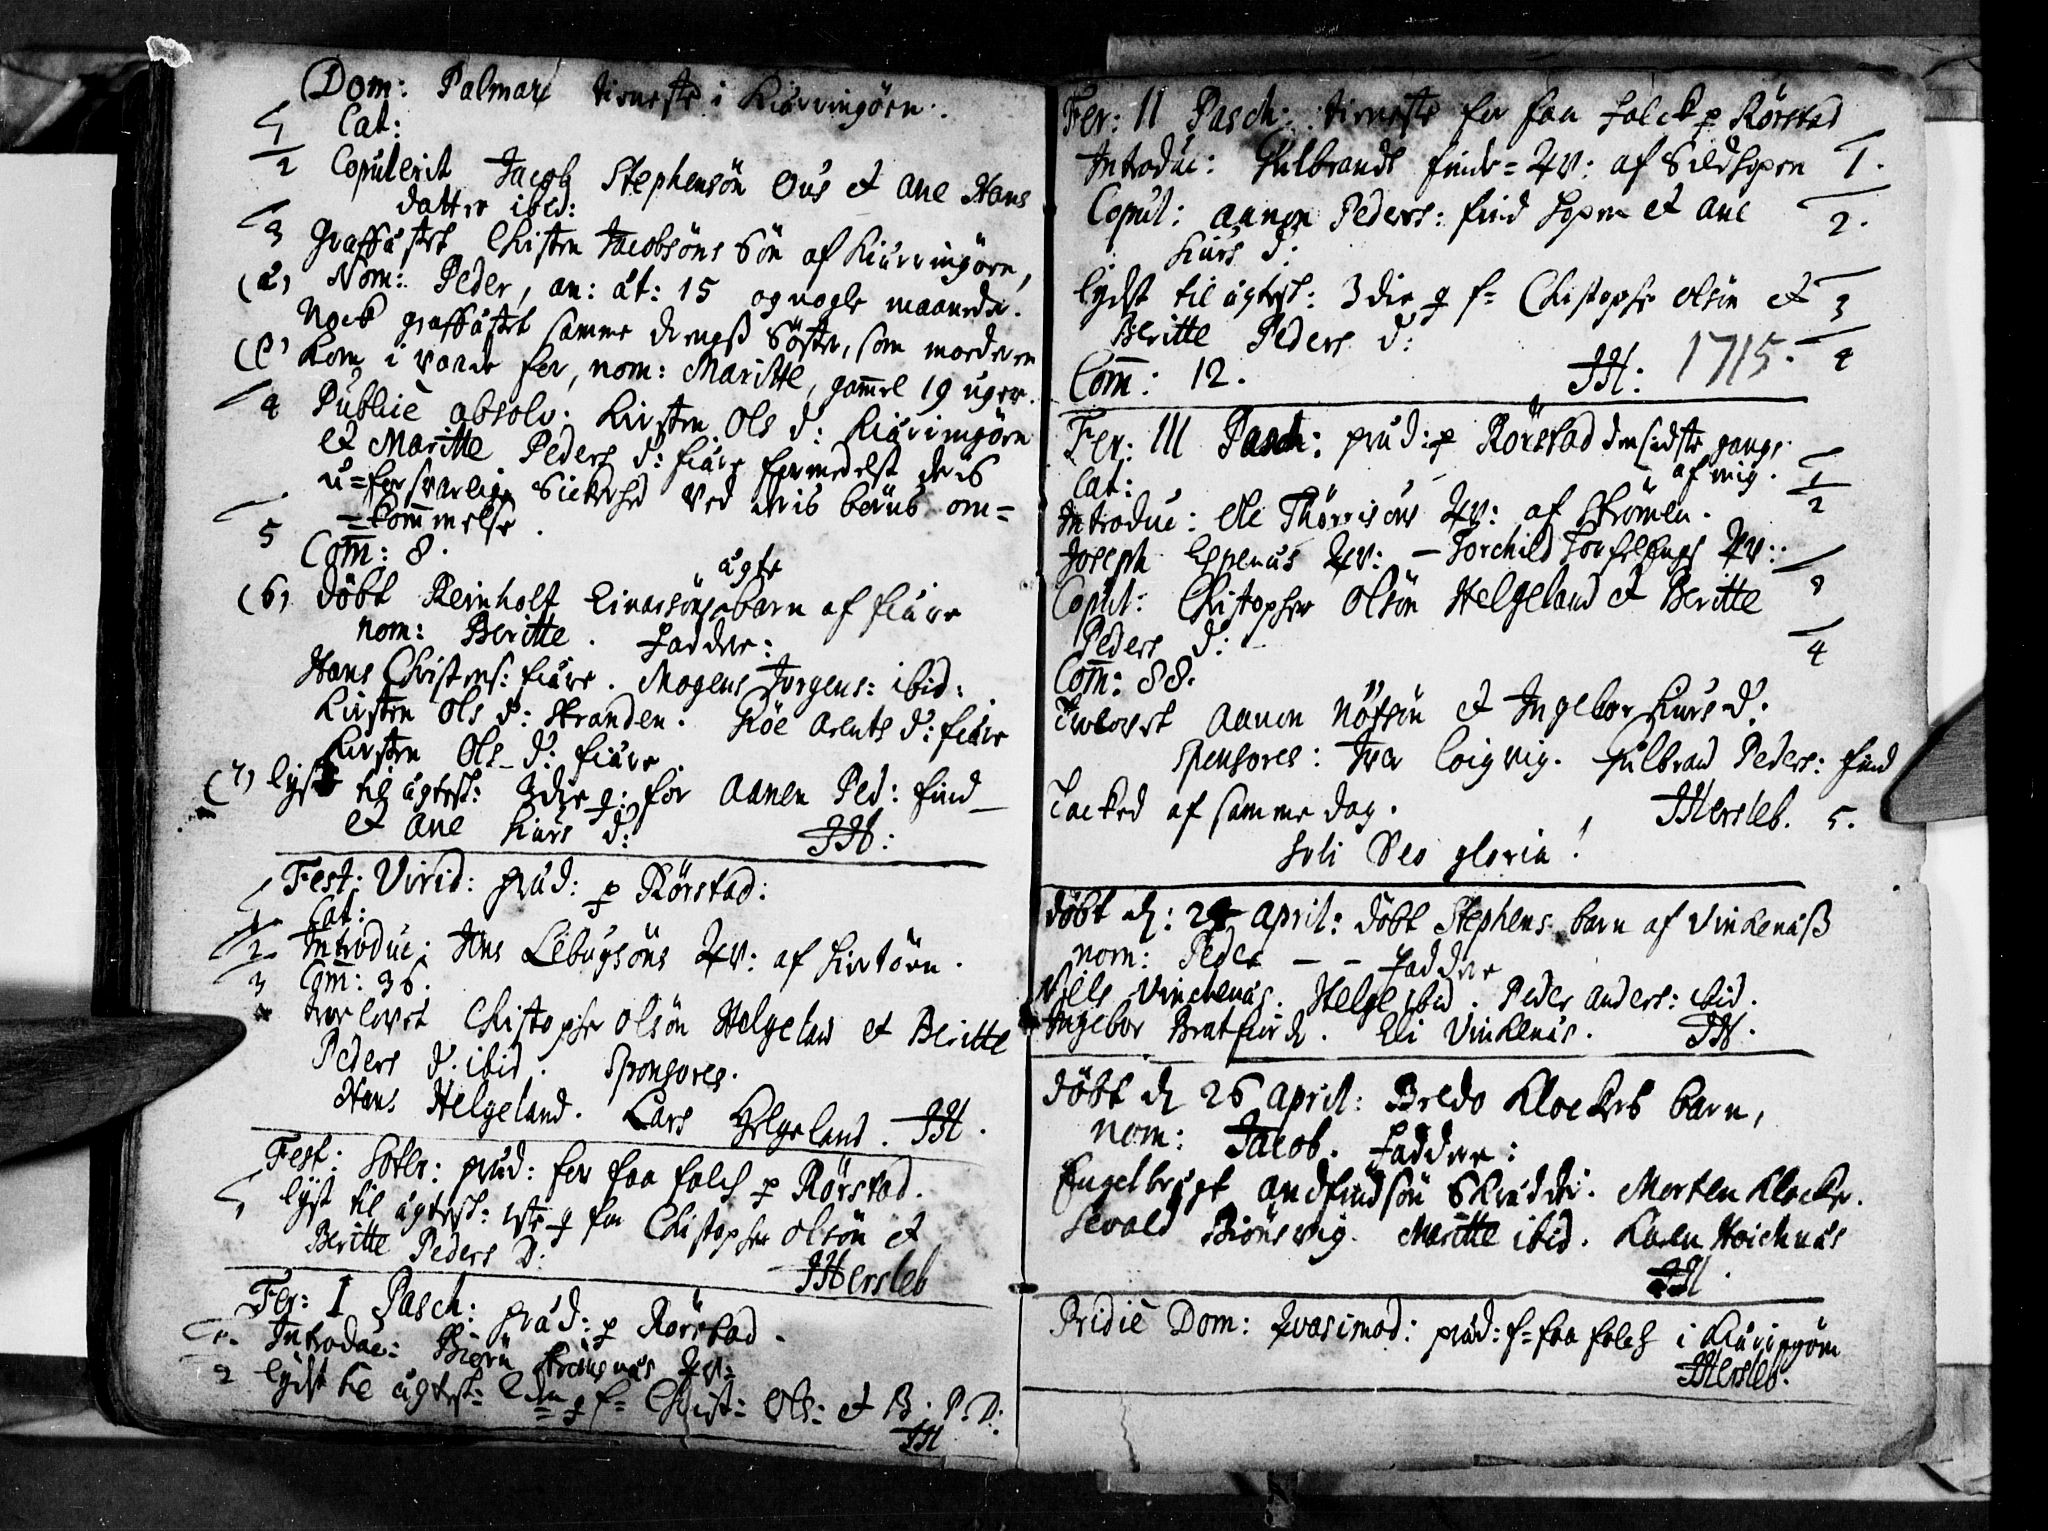 Dom: Palmar tieneste i Kiærringöen.
1 Cat:
2 Copulerit Jacob Stephensön Ous et Ane Hans
datter ibid:
3 Graffæstet Christen Jacobsöns Sön af Kiærringöen,
(a) Nom: Peder, an: æt: 15 og nogle maaneder.
Nock graffæstet samme drengs Söster, som moderen
(b) kom i vaade for, nom: Maritte, gamel 19 uger.
4 Publicè absolv: Kirsten Ols d: Kiærringöen
et Maritte Peders d: fiære formedelst deris
u=forsvarlige Sickerhed ved deris börns om=
=kommelse.
5 Com: 8.
(6) döbt Reinholt Einersöns ægte barn af fiære
nom: Beritte. Faddere:
Hans Christens: fiære. Mogens Jörgens: ibid:
Kirsten Ols d: Stranden. Röe Arents d: fiære
Kirsten Ols d: fiære.
(7) lyst til ægtesk: 3die g: for Aanen Ped: find
et Ane Lars d: JH:
Fest: Virid: præd: p Rörstad:
1 Cat:
2 Introduc: Jens Lebugsöns Qv: af
3 Com: 36.
4 trolovet Christopher Olsön Helgeland et Beritte
Peders d: ibid: Sponsores.
Hans Helgeland. Lars Helgeland. JH.
Fest: Soter: præd: for faa folch p Rörstad.
1 lyst til ægtesk: 1ste g for Christopher Olsön et
Beritte Peders D: JHersleb
Fer: I Pasch: præd: p Rörstad.
1. Introduc: Biörn Qv:
2 lyst til ægtesk: 2den g f= Christ: Ols: et B. P. D:
JH
Fer: II Pasch: tieneste for faa Folck p Rörstad
Introduc: Gulbrands finds= Qv: af Sildhopen 1.
Copul: Aanen Peders: find hopen et Ane 2.
Lars d:
lydst til ægtesk: 3die g f= Christopher Olsön et 3
Beritte Peders d:
Com: 12. JH: 1715. 4
Fer: III Pasch: præd: p Rörstad den sidste gang
af mig.
Cat: 1
Introduc: Ole Thörrisöns Qv: af Strömen. 2
Joseph Espenæs Qv: — Torchild Qv:
Copul: Christopher Olsön Helgeland et Beritte 3
Peders d:
Com: 88. 4
Trolovet Aanen Nössön et Ingebor Lars d:
Sponsores: Iver Gulbrand Peders: find
Tacked af samme dag. JHersleb. 5.
Soli Deo gloria!
döbt d: 24 April: döbt Stephens barn af Vinkenæß
nom: Peder — — Faddere
Niels Vinckenæs. Helge ibid. Peder Anders: ibid.
Ingebor Bratfiord. Eli Vinkenæs. JH.
döbt d 26 April: Bredo Klockers barn,
nom: Jacob. Faddere:
Engelbregt Andfindsön Skrædder. Morten Klocker.
Sevald Biönsvig. Maritte ibid. Karen
JH
Pridiè Dom: Qvasimod: præd: f= faa folch i Kiæringöen
JHersleb.